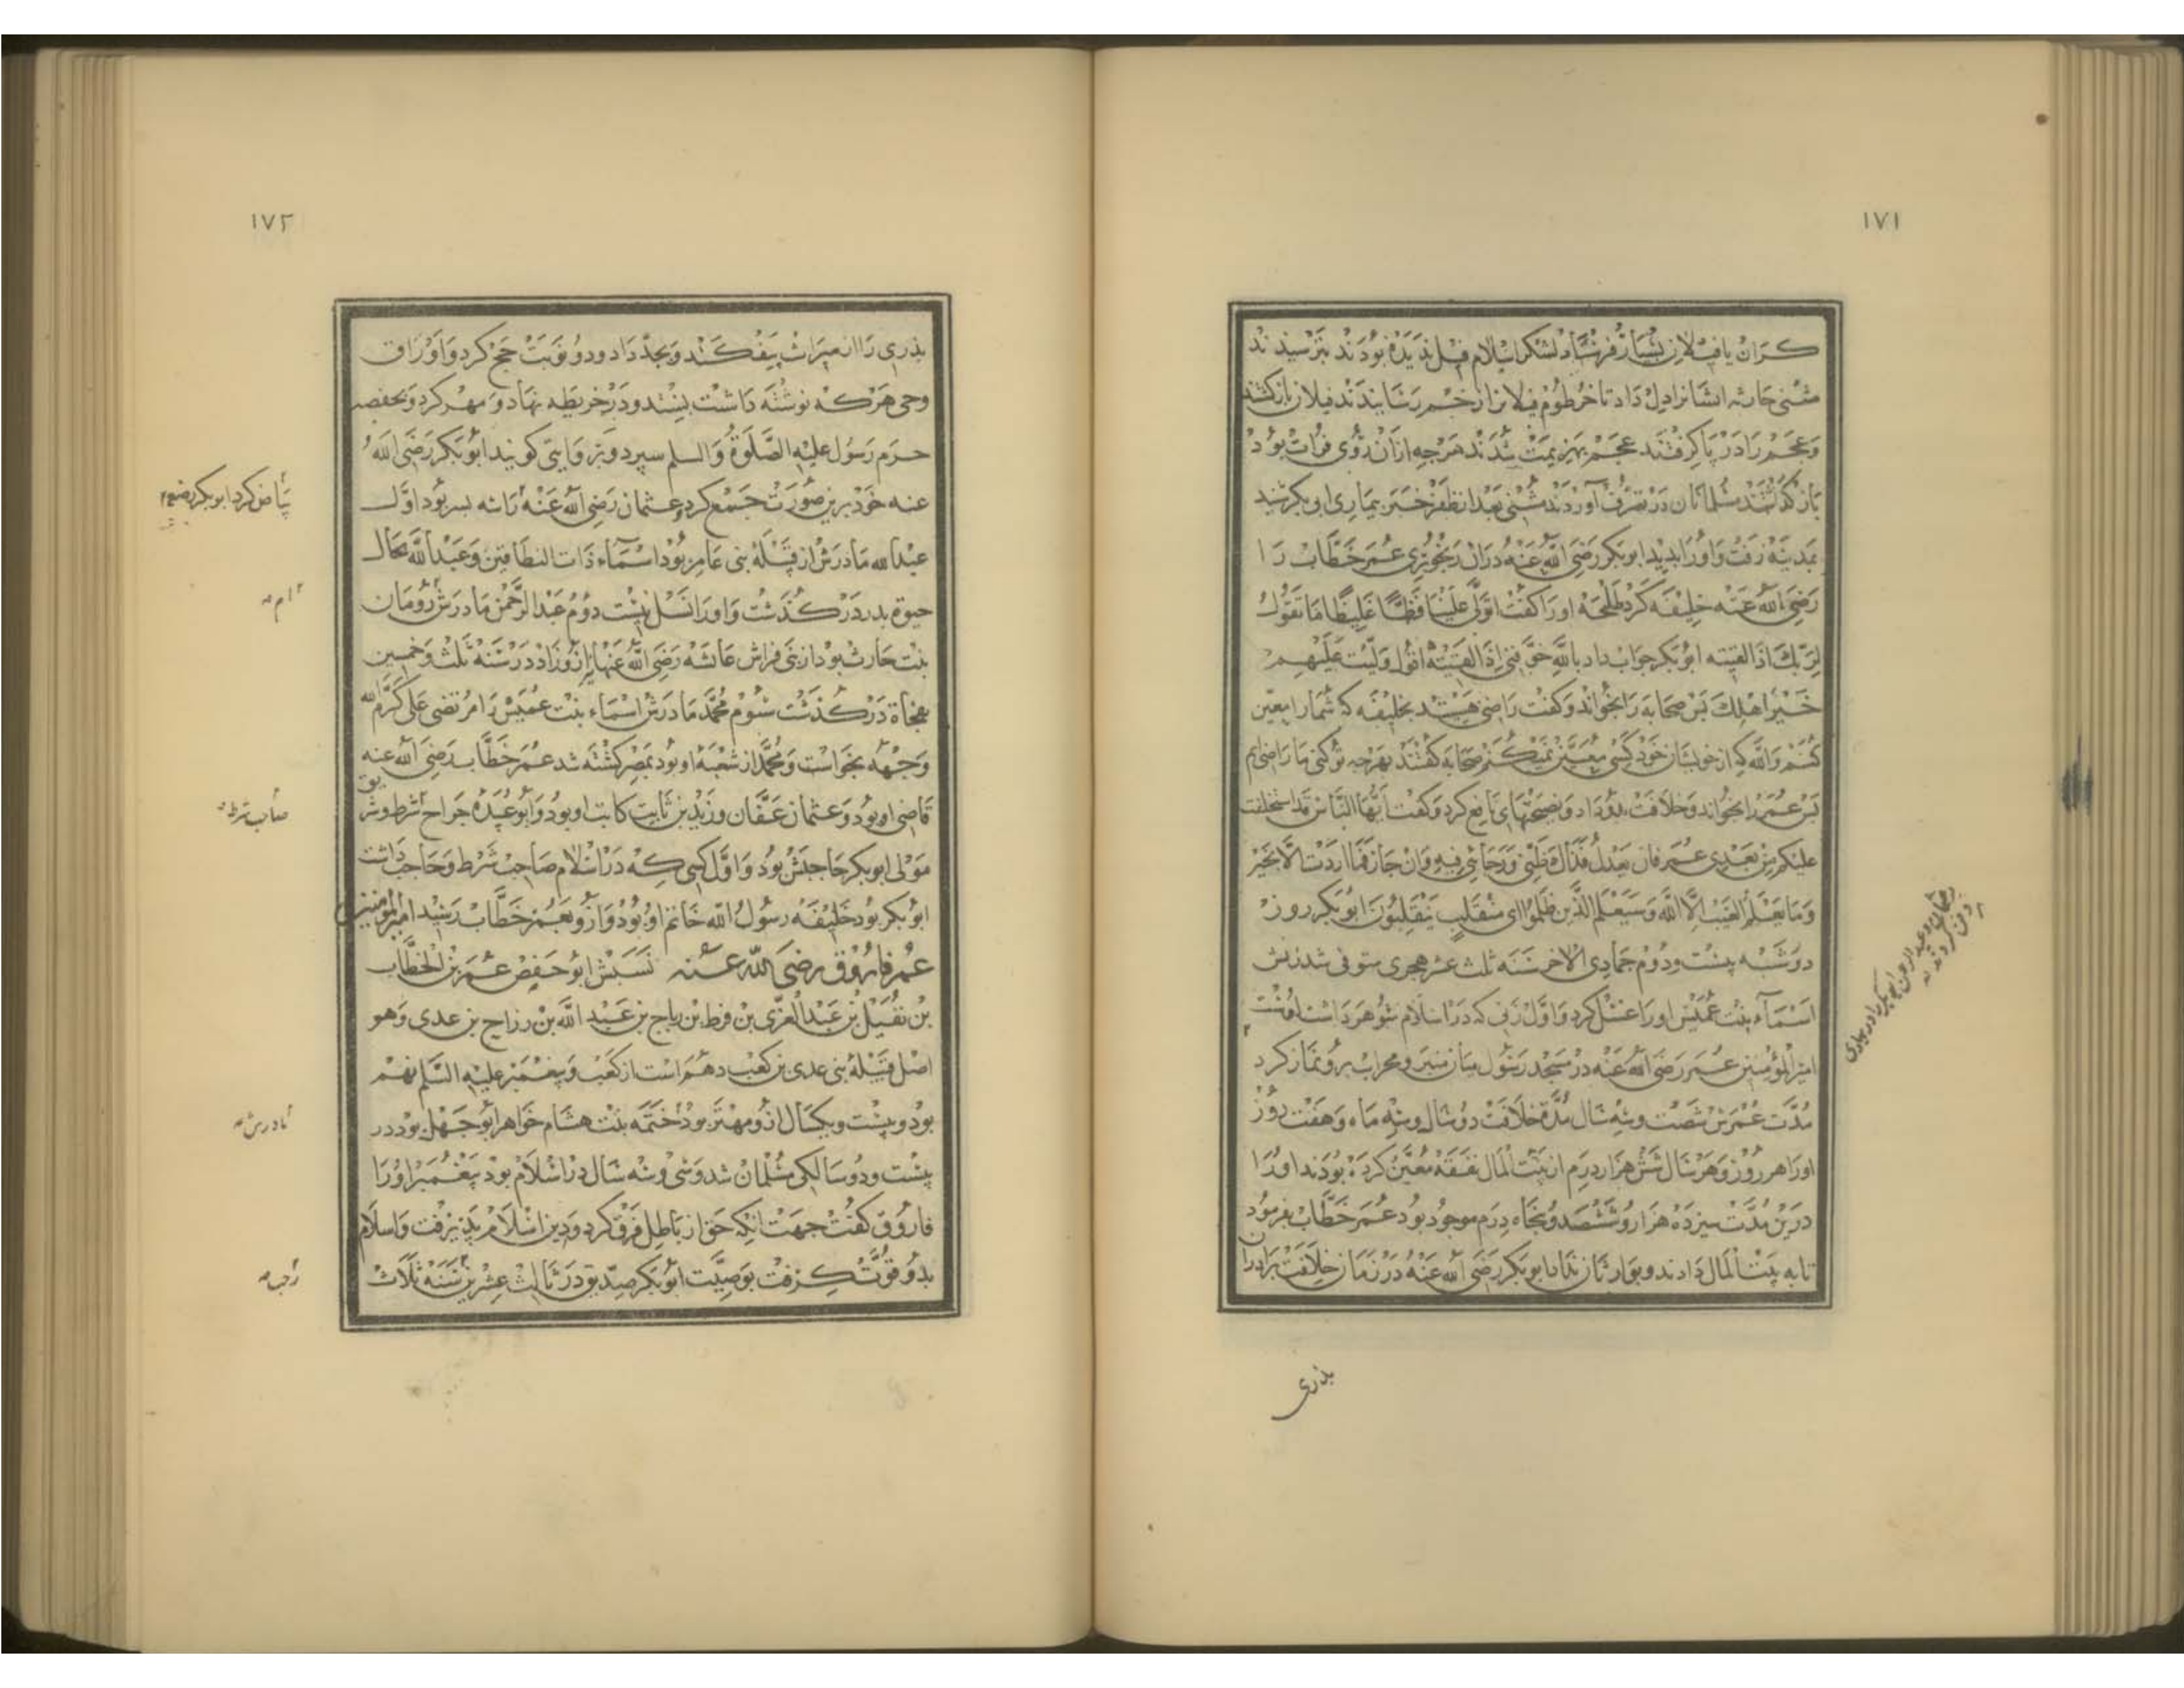 ١٧١
کران با فیلان بسیار فرستاد لشکر اسلام فیل ندیده بودند بترسیدند
مثنی حارثه ایشانرا دل داد تا خرطوم فیلان زخم رسانیدند فیلان بازگشتند
وعجم را در پا گرفتند عجم بهزیمت شدند هرجه ازان روی فرات بود
بازگذاشتند مسلمانان در تصرف آوردند مثنی بعد از ظفر خبر بیماری ابوبکر شنید
بمدینه رفت و اورا بدید ابوبکر رضی الله عنه دران رنجوری عمر خطاب را
رضی الله عنه خلیفه کرد طلحه اورا کفت اتولی علینا فظا غلیظا ما تقول
لربک اذا لقیته ابوبکر جواب داد بالله خوفتنی اذا لقیته اقول ولیت علیهم
خیر اهلک بس صحابه را بخواند و کفت راضی هستید بخلیفه که شما را معین
کنم والله که از خویشان خود کسی معین نمیکنم صحابه کفتند بهرجه تو کنی ما راضی ایم
بس عمر را بخواند و خلافت بدو داد و نصیحتهای نافع کرد و کفت ایها الناس قد استخلفت
علیکم من بعدی عمر فان یعدل فذلک ظنی و رجائی فیه وان جار فما اردت الا الخیر
وما یعلم الغیب الا الله وسیعلم الذین ظلموا ای منقلب ینقلبون ابوبکر روز
دوشنبه بیست و دوم جمادی الاخر سنه ثلث عشر هجری متوفی شد زنش
اسماء بنت عمیس اورا غسل کرد و اول زنی که در اسلام شوهر را شست اوست
امیر المؤمنین عمر رضی الله عنه در مسجد رسول میان منبر و محراب برو نماز کرد
مدت عمرش شصت و سه سال مدة خلافت دو سال و سه ماه و هفت روز
اورا هر روز و هر سال شش هزار درم از بیت المال نفقه معین کرده بودند اورا
درین مدت سیزده هزار و ششصد و پنجاه درم موجود بود عمر خطاب بفرمود
تا به بیت المال دادند و بوارثان نداد ابوبکر رضی الله عنه در زمان خلافت برادر
بذری
١٧٢
بذری را از میراث بیفکند و بجد داد و دو نوبت حج کرد و اوراق
وحی هرکه نوشته داشت بستد و در خریطه نهاد و مهر کرد و بحفصه
حرم رسول علیه الصلوة والسلم سپرد و بروایتی کویند ابوبکر رضی الله
عنه خود برین صورت جمع کرد و عثمان رضی الله عنه را سه بسر بود اول
عبدالله مادرش از قبیله بنی عامر بود اسماء ذات النطاقین و عبدالله بحال
حیوة بدر درکذشت و اورا نسل نیست دوم عبدالرحمن مادرش رومان
بنت حارث بود از بنی فراش عائشه رضی الله عنها ازو زاد در سنه ثلث وخمسین
بفجاة درکذشت سوم محمد مادرش اسماء بنت عمیس را مرتضی علی کرم الله
وجهه بخواست و محمد از شعبه او بود بمصر کشته شد عمر خطاب رضی الله عنه
قاضی او بود و عثمان عفان و زید بن ثابت کاتب او بود و ابو عبیده جراح شرط و شریق
مولی ابوبکر حاجبش بود و اول کسی که در اسلام صاحب شرط و حاجب داشت
ابوبکر بود خلیفه رسول الله خاتم او بود و ازو بعمر خطاب رسید امیر المؤمنین
عمر فاروق رضی الله عنه نسبش ابو حفص عمر بن الخطاب
بن نفیل بن عبد العزی بن قرط بن ریاح بن عبد الله بن رزاح بن عدی وهو
اصل قبیله بنی عدی بن کعب دهم است از کعب و پیغمبر علیه السلم نهم
بود و بیست و یکسال ازو مهتر بود ختمه بنت هشام خواهر ابو جهل بود در
بیست و دو سالکی مسلمان شد و سی و سه سال در اسلام بود پیغمبر اورا
فاروق کفت جهت انکه حق از باطل فرق کرد و دین اسلام بپذیرفت و اسلام
بدو قوت کرفت بوصیت ابوبکر صدیق در ثالث عشرین سنه ثلاث
مادرش